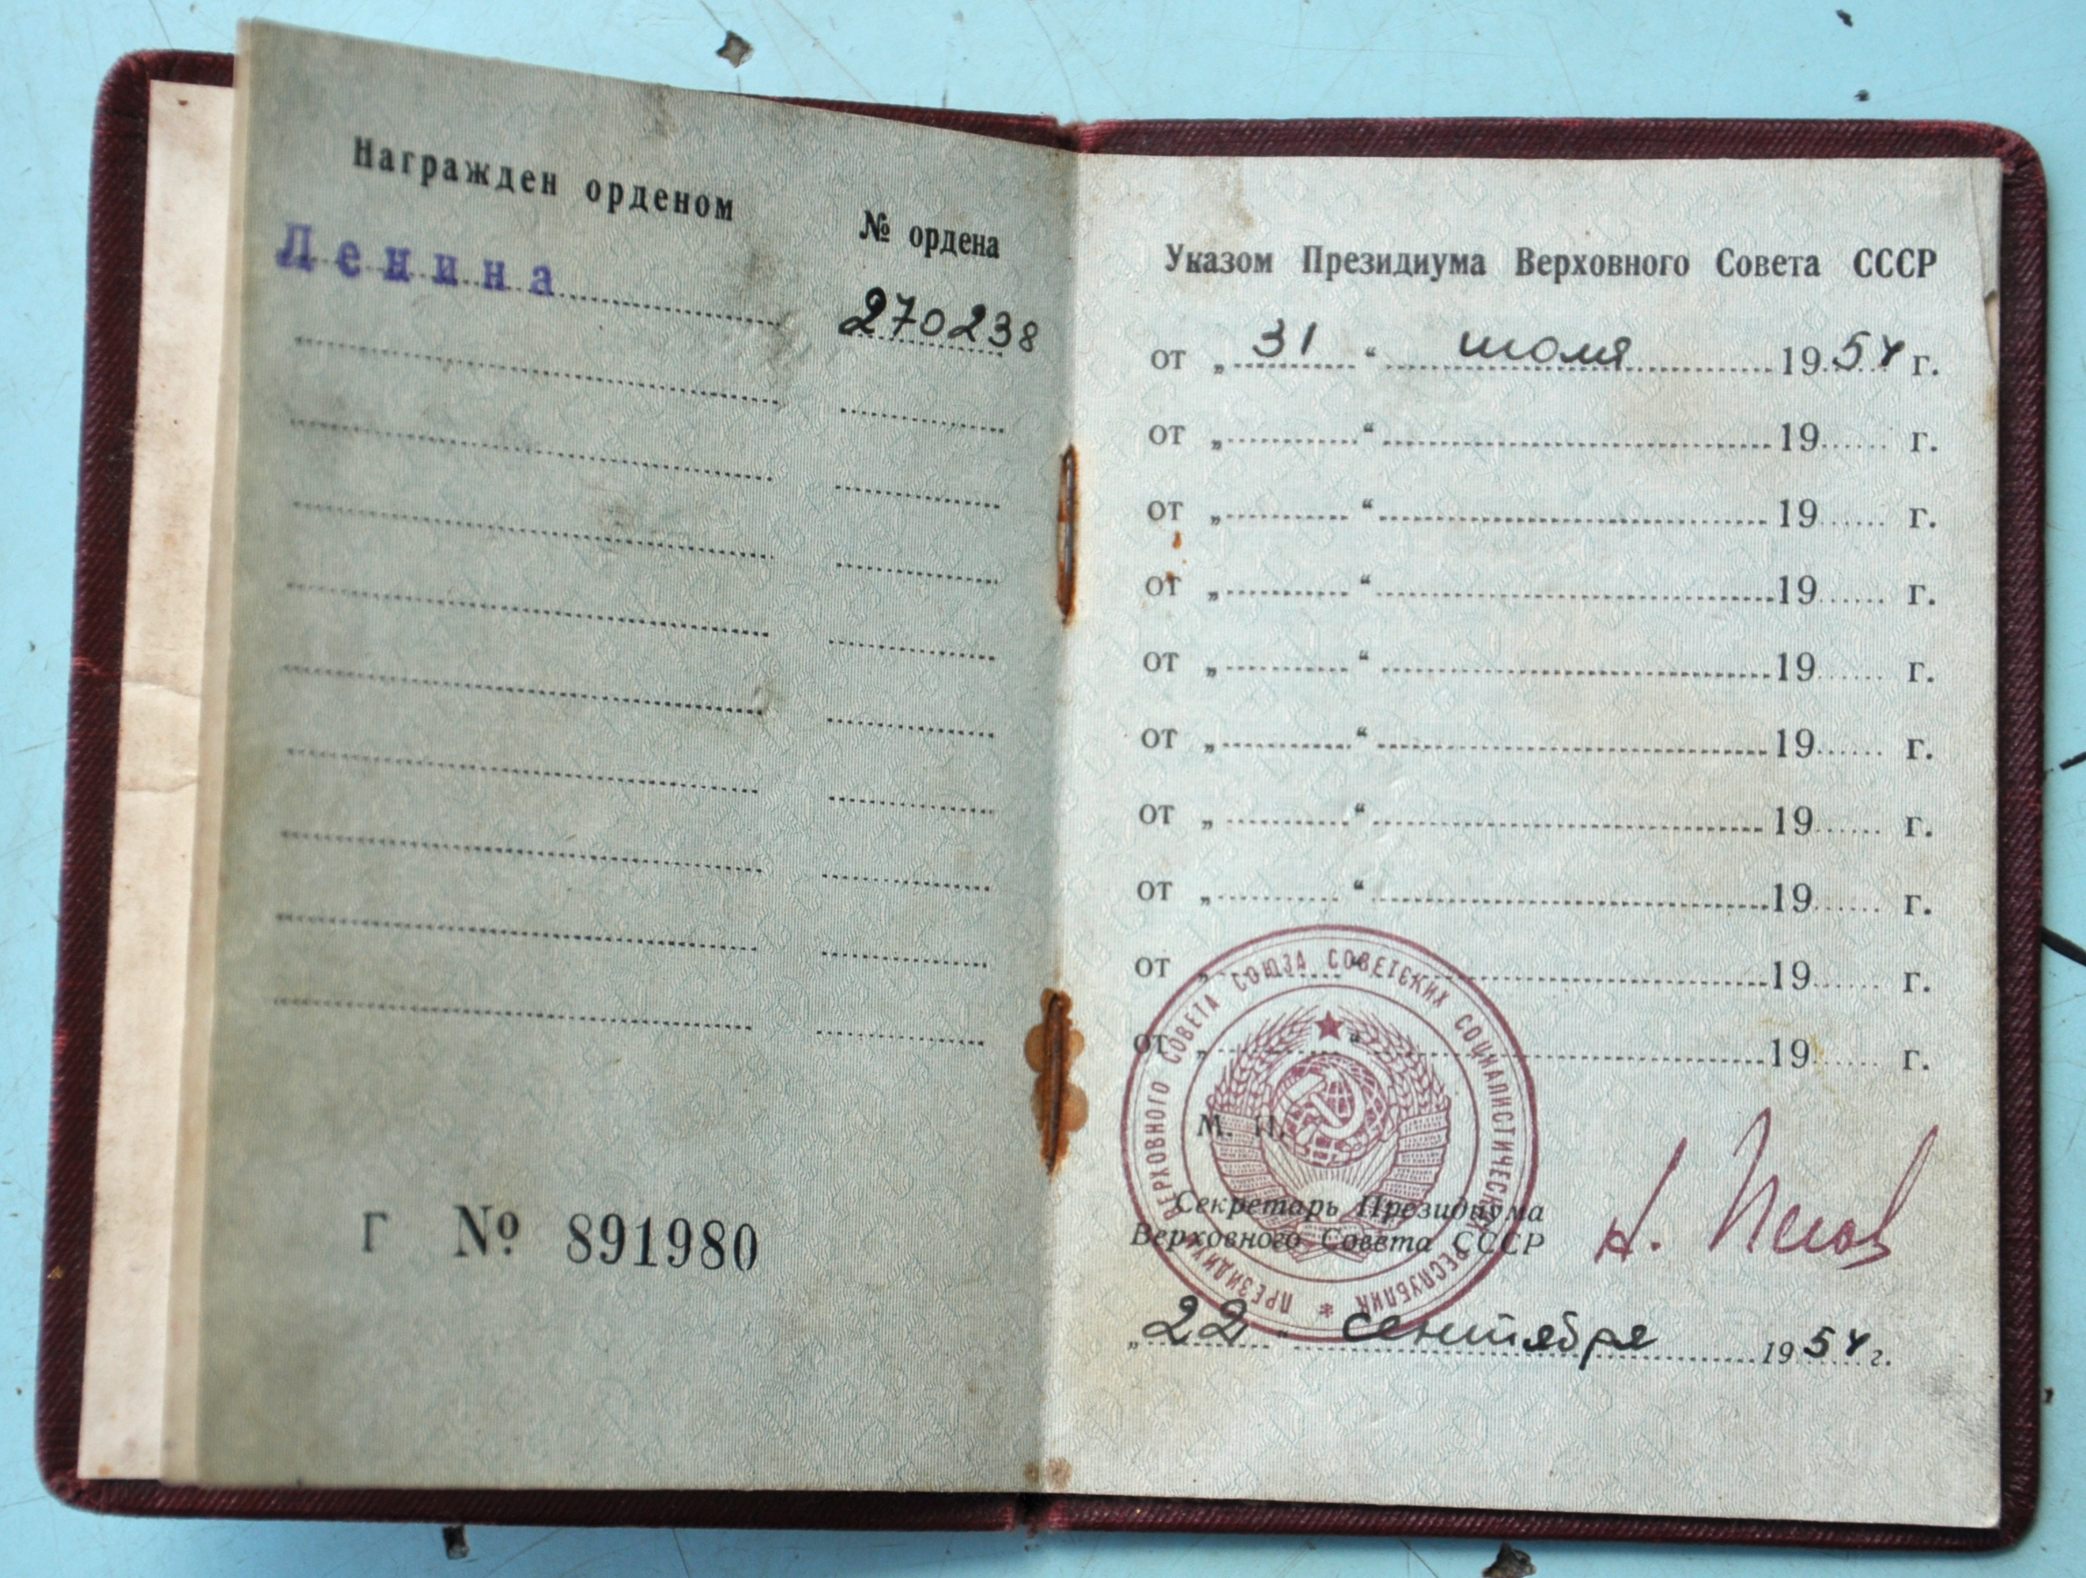 Награжден орденом
№ ордена
Ленина
270238
г № 891980
Указом Президиума Верховного Совета СССР
от „31“ июля 1954 г.
от „ “ 19 г.
от „ “ 19 г.
от „ “ 19 г.
от „ “ 19 г.
от „ “ 19 г.
от „ “ 19 г.
от „ “ 19 г.
от „ “ 19 г.
от „ “ 19 г.
ПРЕЗИДИУМ ВЕРХОВНОГО СОВЕТА СОЮЗА СОВЕТСКИХ СОЦИАЛИСТИЧЕСКИХ РЕСПУБЛИК *
М. П.
Секретарь Президиума
Верховного Совета СССР
Н. Пегов
„22“ сентября 1954 г.